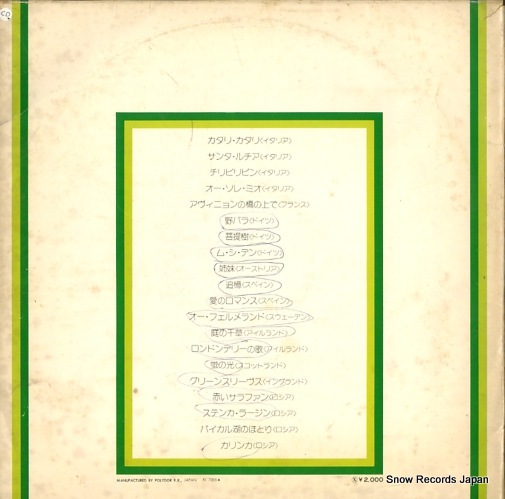 CD
カタリ・カタリ〈イタリア〉
サンタ・ルチア〈イタリア〉
チリビリビン〈イタリア〉
オー・ソレ・ミオ〈イタリア〉
アヴィニョンの橋の上で〈フランス〉
野バラ〈ドイツ〉
菩提樹〈ドイツ〉
ム・シ・デン〈ドイツ〉
姉妹〈オーストリア〉
追憶〈スペイン〉
愛のロマンス〈スペイン〉
オー・フェルメランド〈スウェーデン〉
庭の千草〈アイルランド〉
ロンドンデリーの歌〈アイルランド〉
蛍の光〈スコットランド〉
グリーンスリーヴス〈イングランド〉
赤いサラファン〈ロシア〉
ステンカ・ラージン〈ロシア〉
バイカル湖のほとり〈ロシア〉
カリンカ〈ロシア〉
MANUFACTURED BY POLYDOR K.K., JAPAN
¥2,000
Snow Records Japan